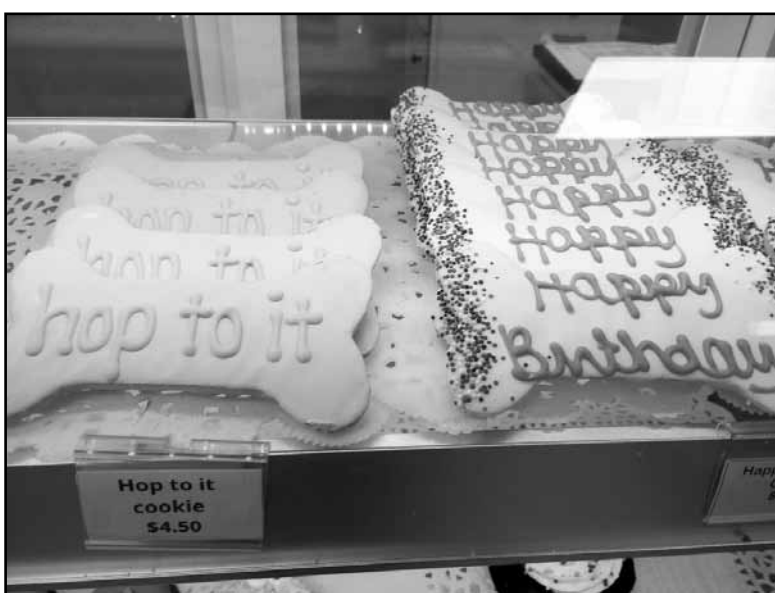 hop to it
hop to it
hop to it
hop to it
Happy
Happy
Happy
Happy
Happy
Happy
Happy
Birthday
Hop to it
cookie
$4.50